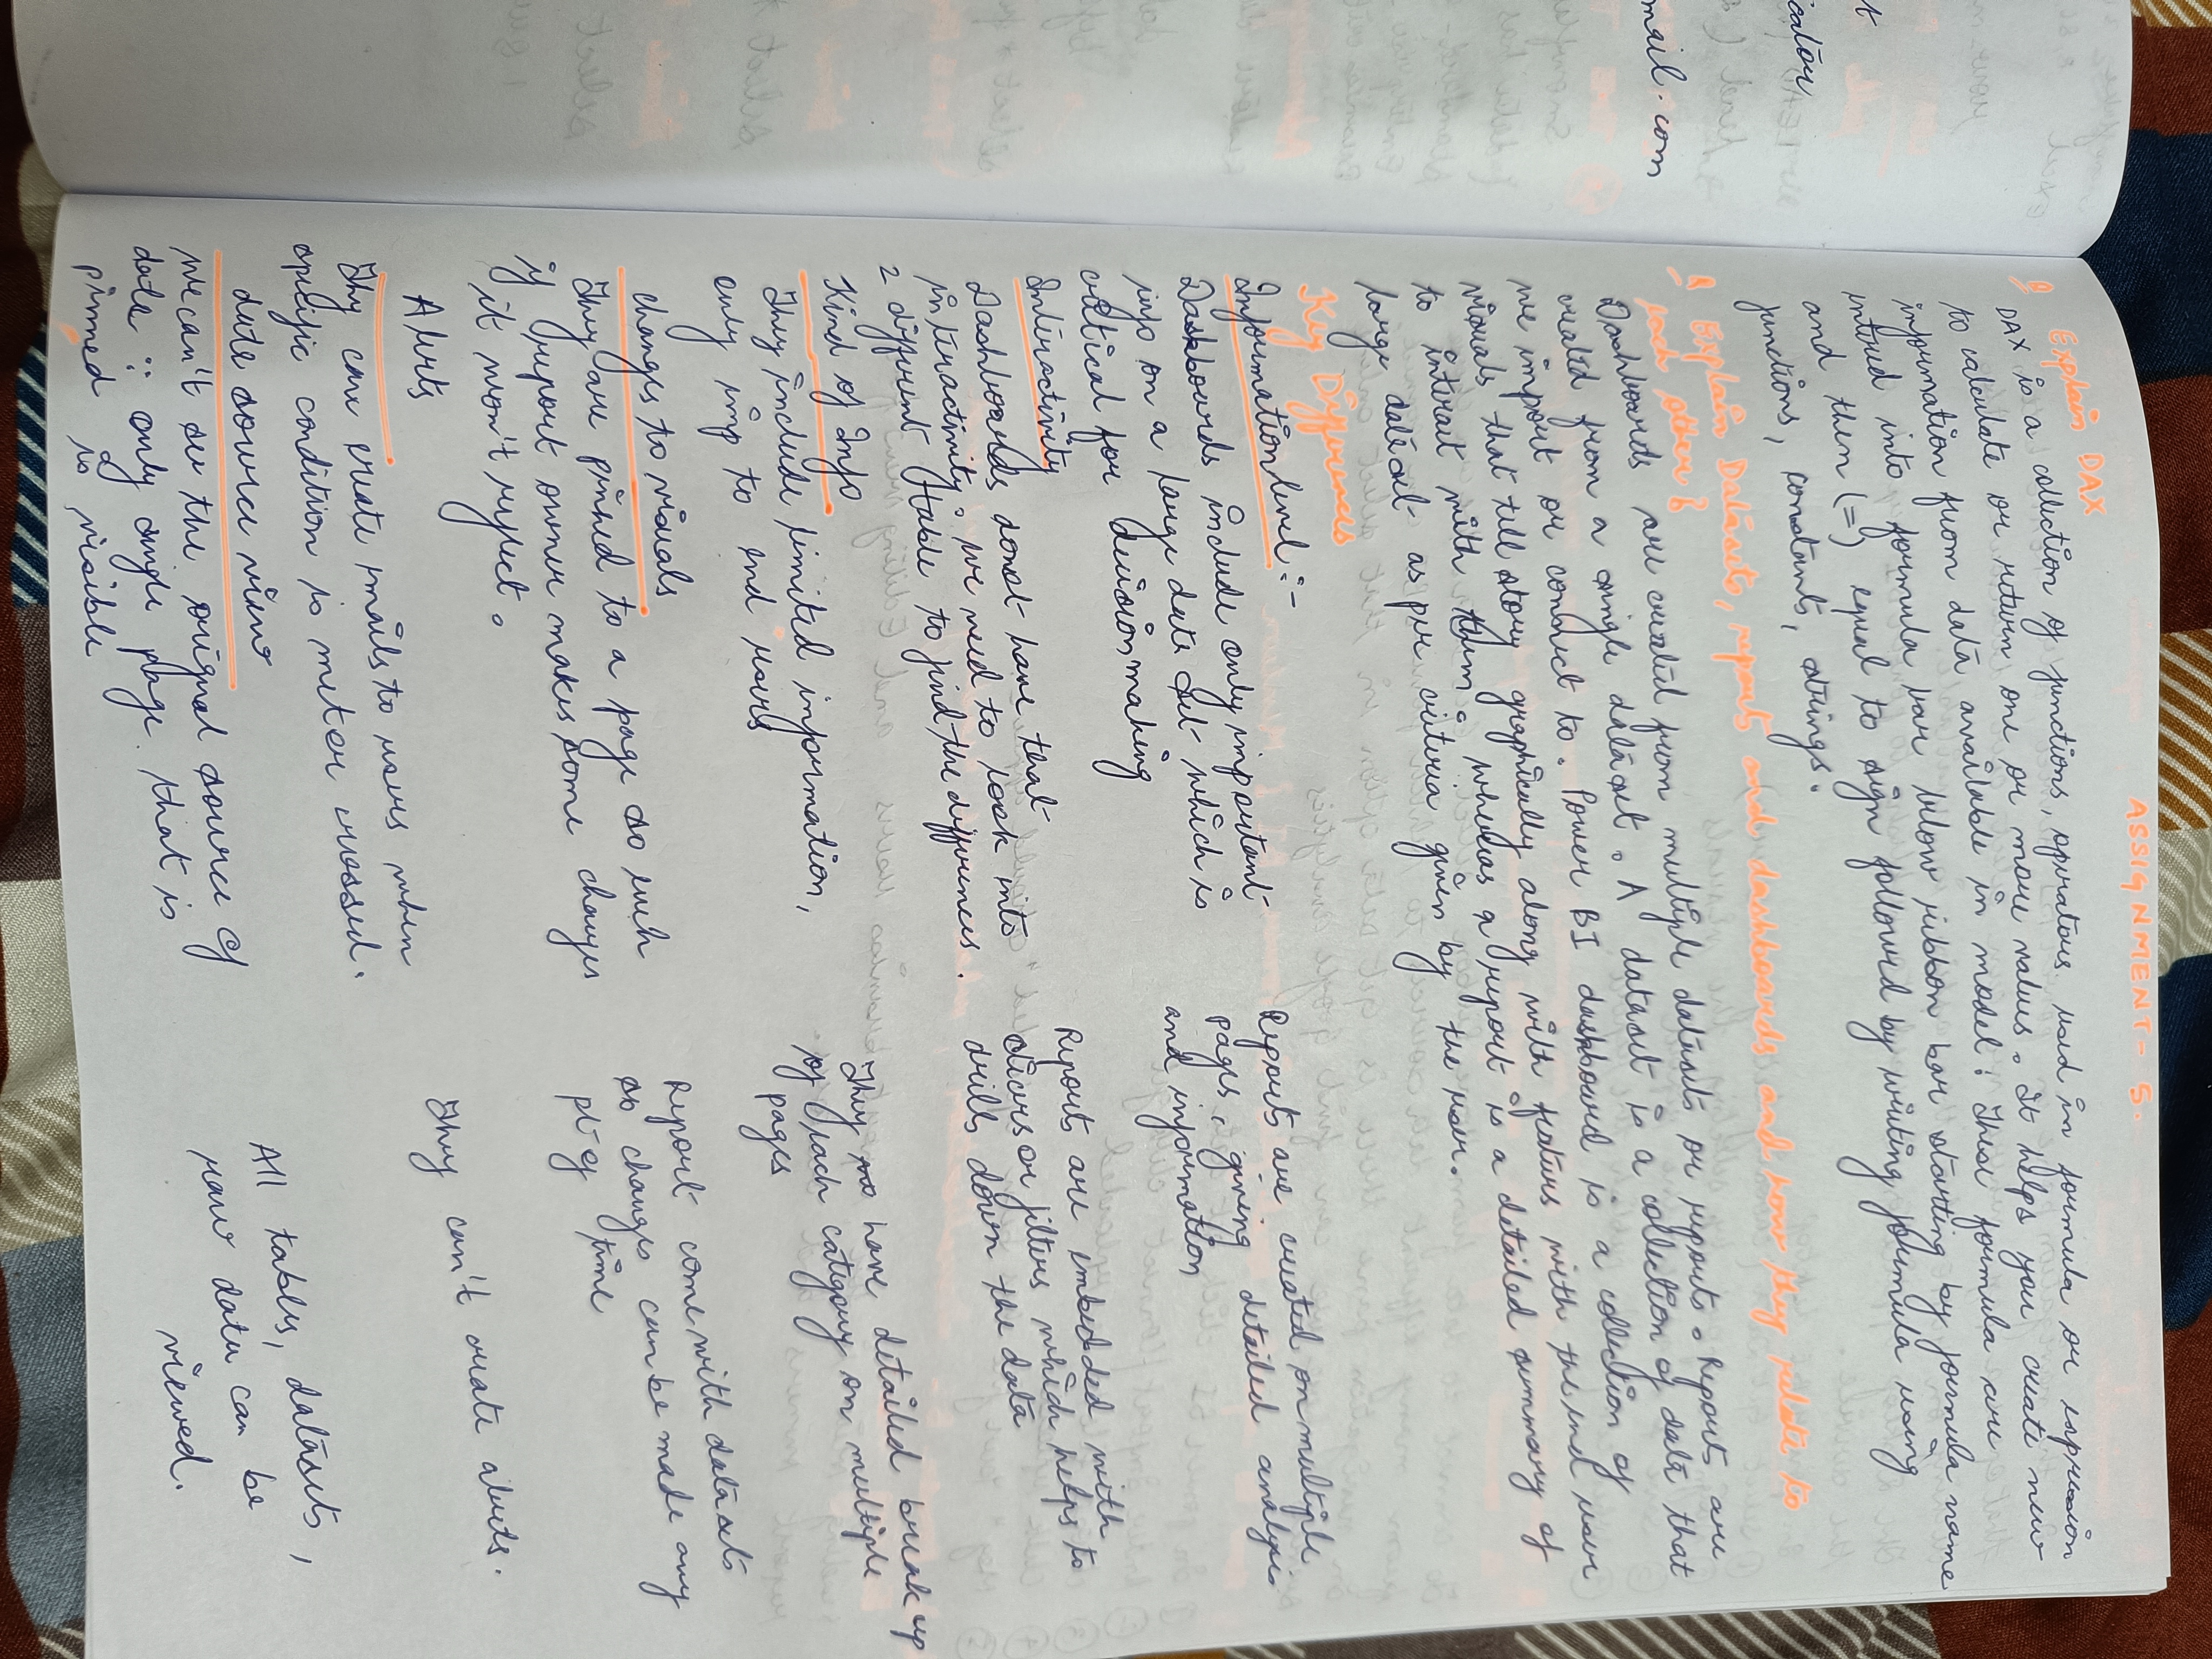 t
icator
mail.com
ASSIGNMENT - 5.
Q Explain DAX
DAX is a collection of functions, operators used in formula or expression
to calculate or return one or more values. It helps you create new
information from data available in model. These formula are
intred into formula bar below ribbon bar starting by formula name
and then (=) equal to sign followed by writing formula using
functions, constants, strings.
Q Explain Datasets, reports and dashboards and how they relate to
each other?
Dashboards are created from multiple datasets or reports. Reports are
created from a single dataset. A dataset is a collection of data that
we import or connect to. Power BI dashboard is a collection of
visuals that tell story graphically along with features with the end user
to interact with them, whereas a report is a detailed summary of
large dataset as per criteria given by the user.
Key Differences
Information level :-
Dashboards include only important
info on a large data set which is
critical for decision making
Reports are created on multiple
pages, giving detailed analysis
and information
Interactivity
Dashboards donot have that
interactivity, we need to look into
2 different table to find the differences.
Reports are embedded with
slicers or filters which helps to
drills down the data
Kind of Info
They include limited information,
only imp to end users
They have detailed break up
of each category on multiple
pages
Changes to visuals
They are pinned to a page so such
if report owner makes some changes
it won't reflect.
Report come with datasets
so changes can be made any
pt of time
Alerts
They can create emails to users when
specific condition is met or crossed.
They can't create alerts.
data source view
we can't see the original source of
data ∵ only single page that is
pinned is visible
All tables, datasets,
raw data can be
viewed.